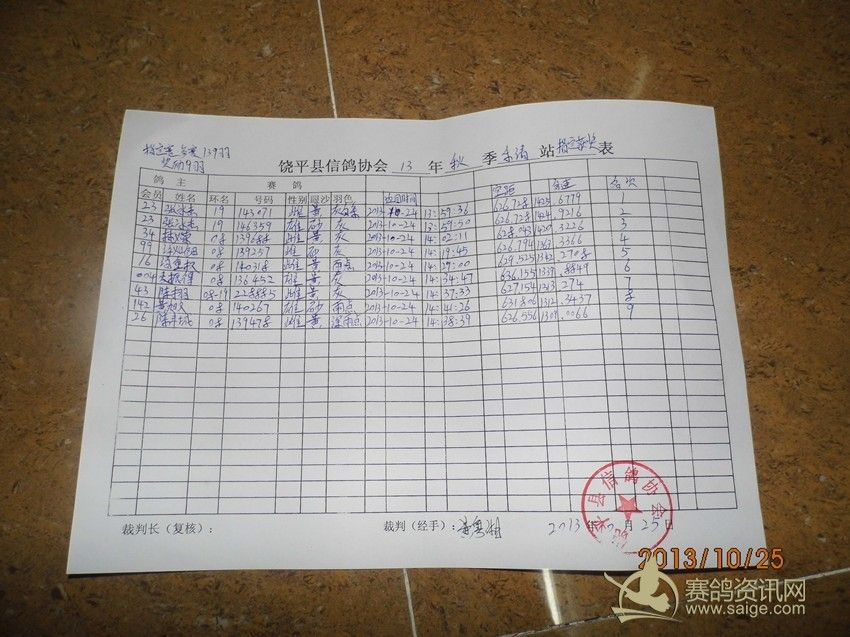 指定赛 参赛 139羽
奖励9羽
饶平县信鸽协会 13 年 秋 季 乐清 站 指定获奖 表
鸽 主 赛 鸽
会员 姓名 环名 号码 性别 眼沙 羽色 返回时间 空距 分速 名次
23 19 143071 雌 黄 2013-10-24 13:59:36 626.728 1425.6779 1
23 19 146359 雄 砂 灰 2013-10-24 13:59:50 626.728 1424.9216 2
34 08 139688 雌 黄 灰 2013-10-24 14:02:11 628.043 1420.3226 3
99 08 139257 雌 砂 灰 2013-10-24 14:19:45 626.794 1363.3366 4
16 08 140318 雌 黄 雨点 2013-10-24 14:29:00 629.525 1342.2708 5
004 08 136452 雄 黄 灰 2013-10-24 14:34:47 636.155 1339.8849 6
43 08-19 228885 雌 黄 灰 2013-10-24 14:37:33 627.154 1243.274 7
142 08 140267 雄 砂 雨点 2013-10-24 14:41:26 631.806 1312.3437 8
26 08 139478 雌 黄 深雨点 2013-10-24 14:38:39 626.556 1309.0066 9
裁判长（复核）： 裁判（经手）： 2013 年 10 月 25 日
县信鸽协会
2013/10/25
赛鸽资讯网
www.saige.com